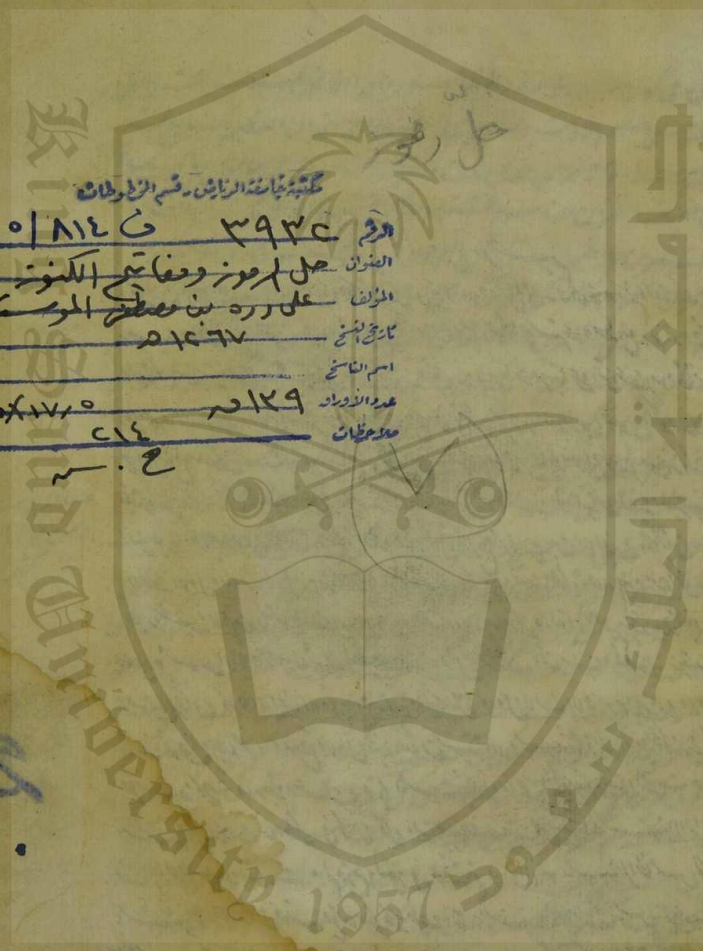 حل رموز
مكتبة جامعة الرياض - قسم المخطوطات
الرقم ٣٩٣٢ ف ٨١٤/٥
العنوان حل الرموز ومفاتيح الكنوز
المؤلف على دده بن مصطفى
تاريخ النسخ ١٢٦٧ه
اسم الناسخ
عدد الأوراق ١٣٩ق ١٧٫٥x
ملاحظات ٢١٤
King Saud University 1957
جامعة الملك سعود